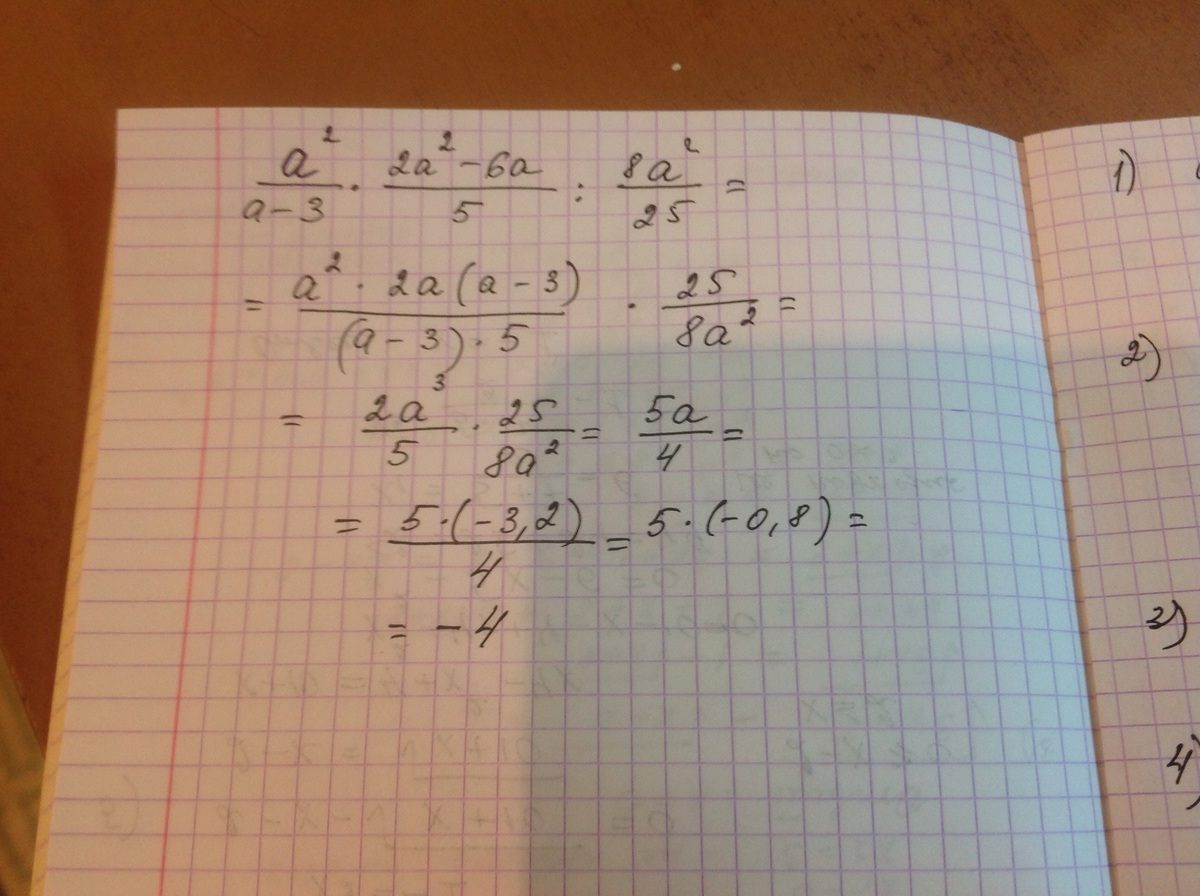 a²/(a-3) · (2a²-6a)/5 : 8a²/25 =
= (a² · 2a(a-3))/((a-3)·5) · 25/8a² =
= 2a³/5 · 25/8a² = 5a/4 =
= (5·(-3,2))/4 = 5·(-0,8) =
= -4
1)
2)
3)
4)